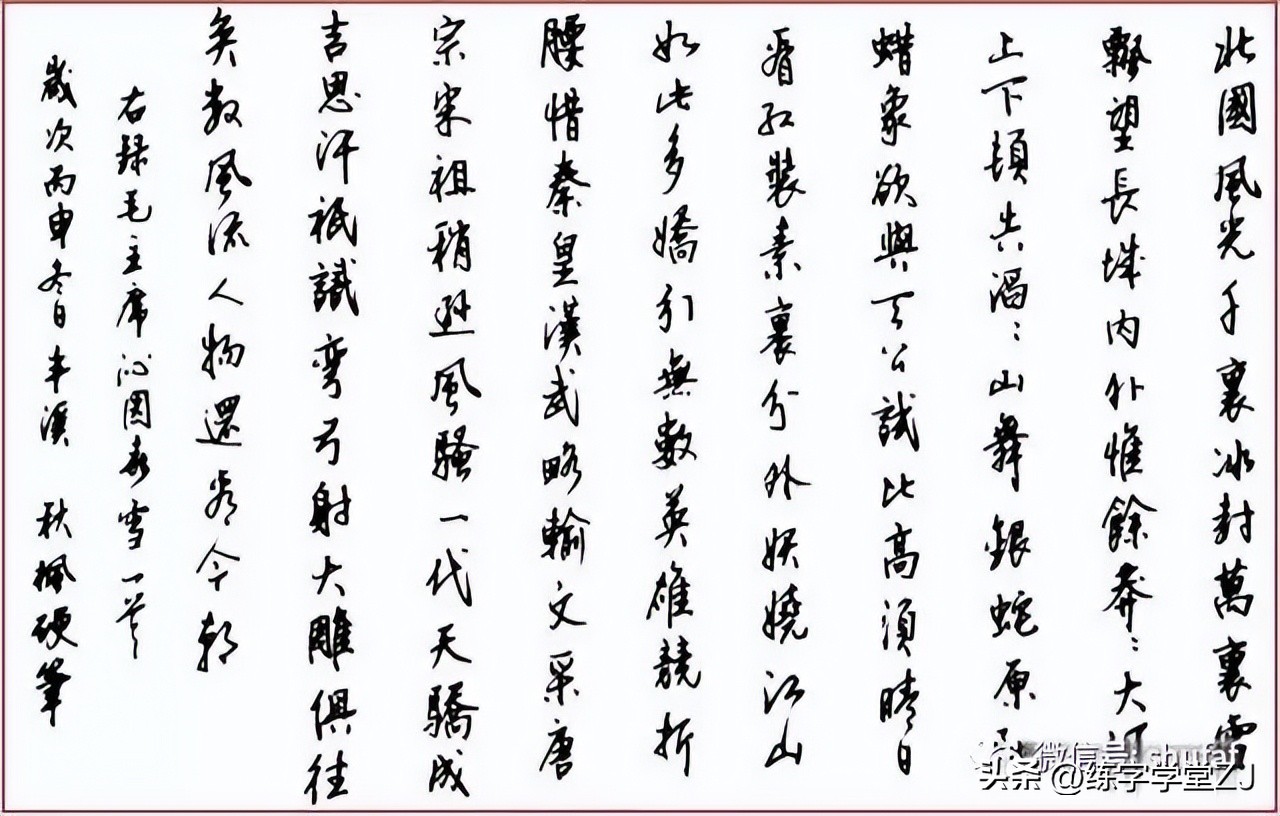 北國風光千裏冰封萬裏雪
飄望長城内外惟餘莽〻大河
上下頓失滔〻山舞銀蛇原馳
蜡象欲與天公試比高須晴日
看紅裝素裏分外妖嬈江山
如此多嬌引無數英雄競折
腰惜秦皇漢武略輸文采唐
宗宋祖稍遜風騷一代天驕成
吉思汗祇識彎弓射大雕俱往
矣數風流人物還看今朝
右録毛主席沁園春雪一首
歲次丙申冬日丰溪 秋楓硬筆
微信号: shufaf
头条 @练字学堂ZJ